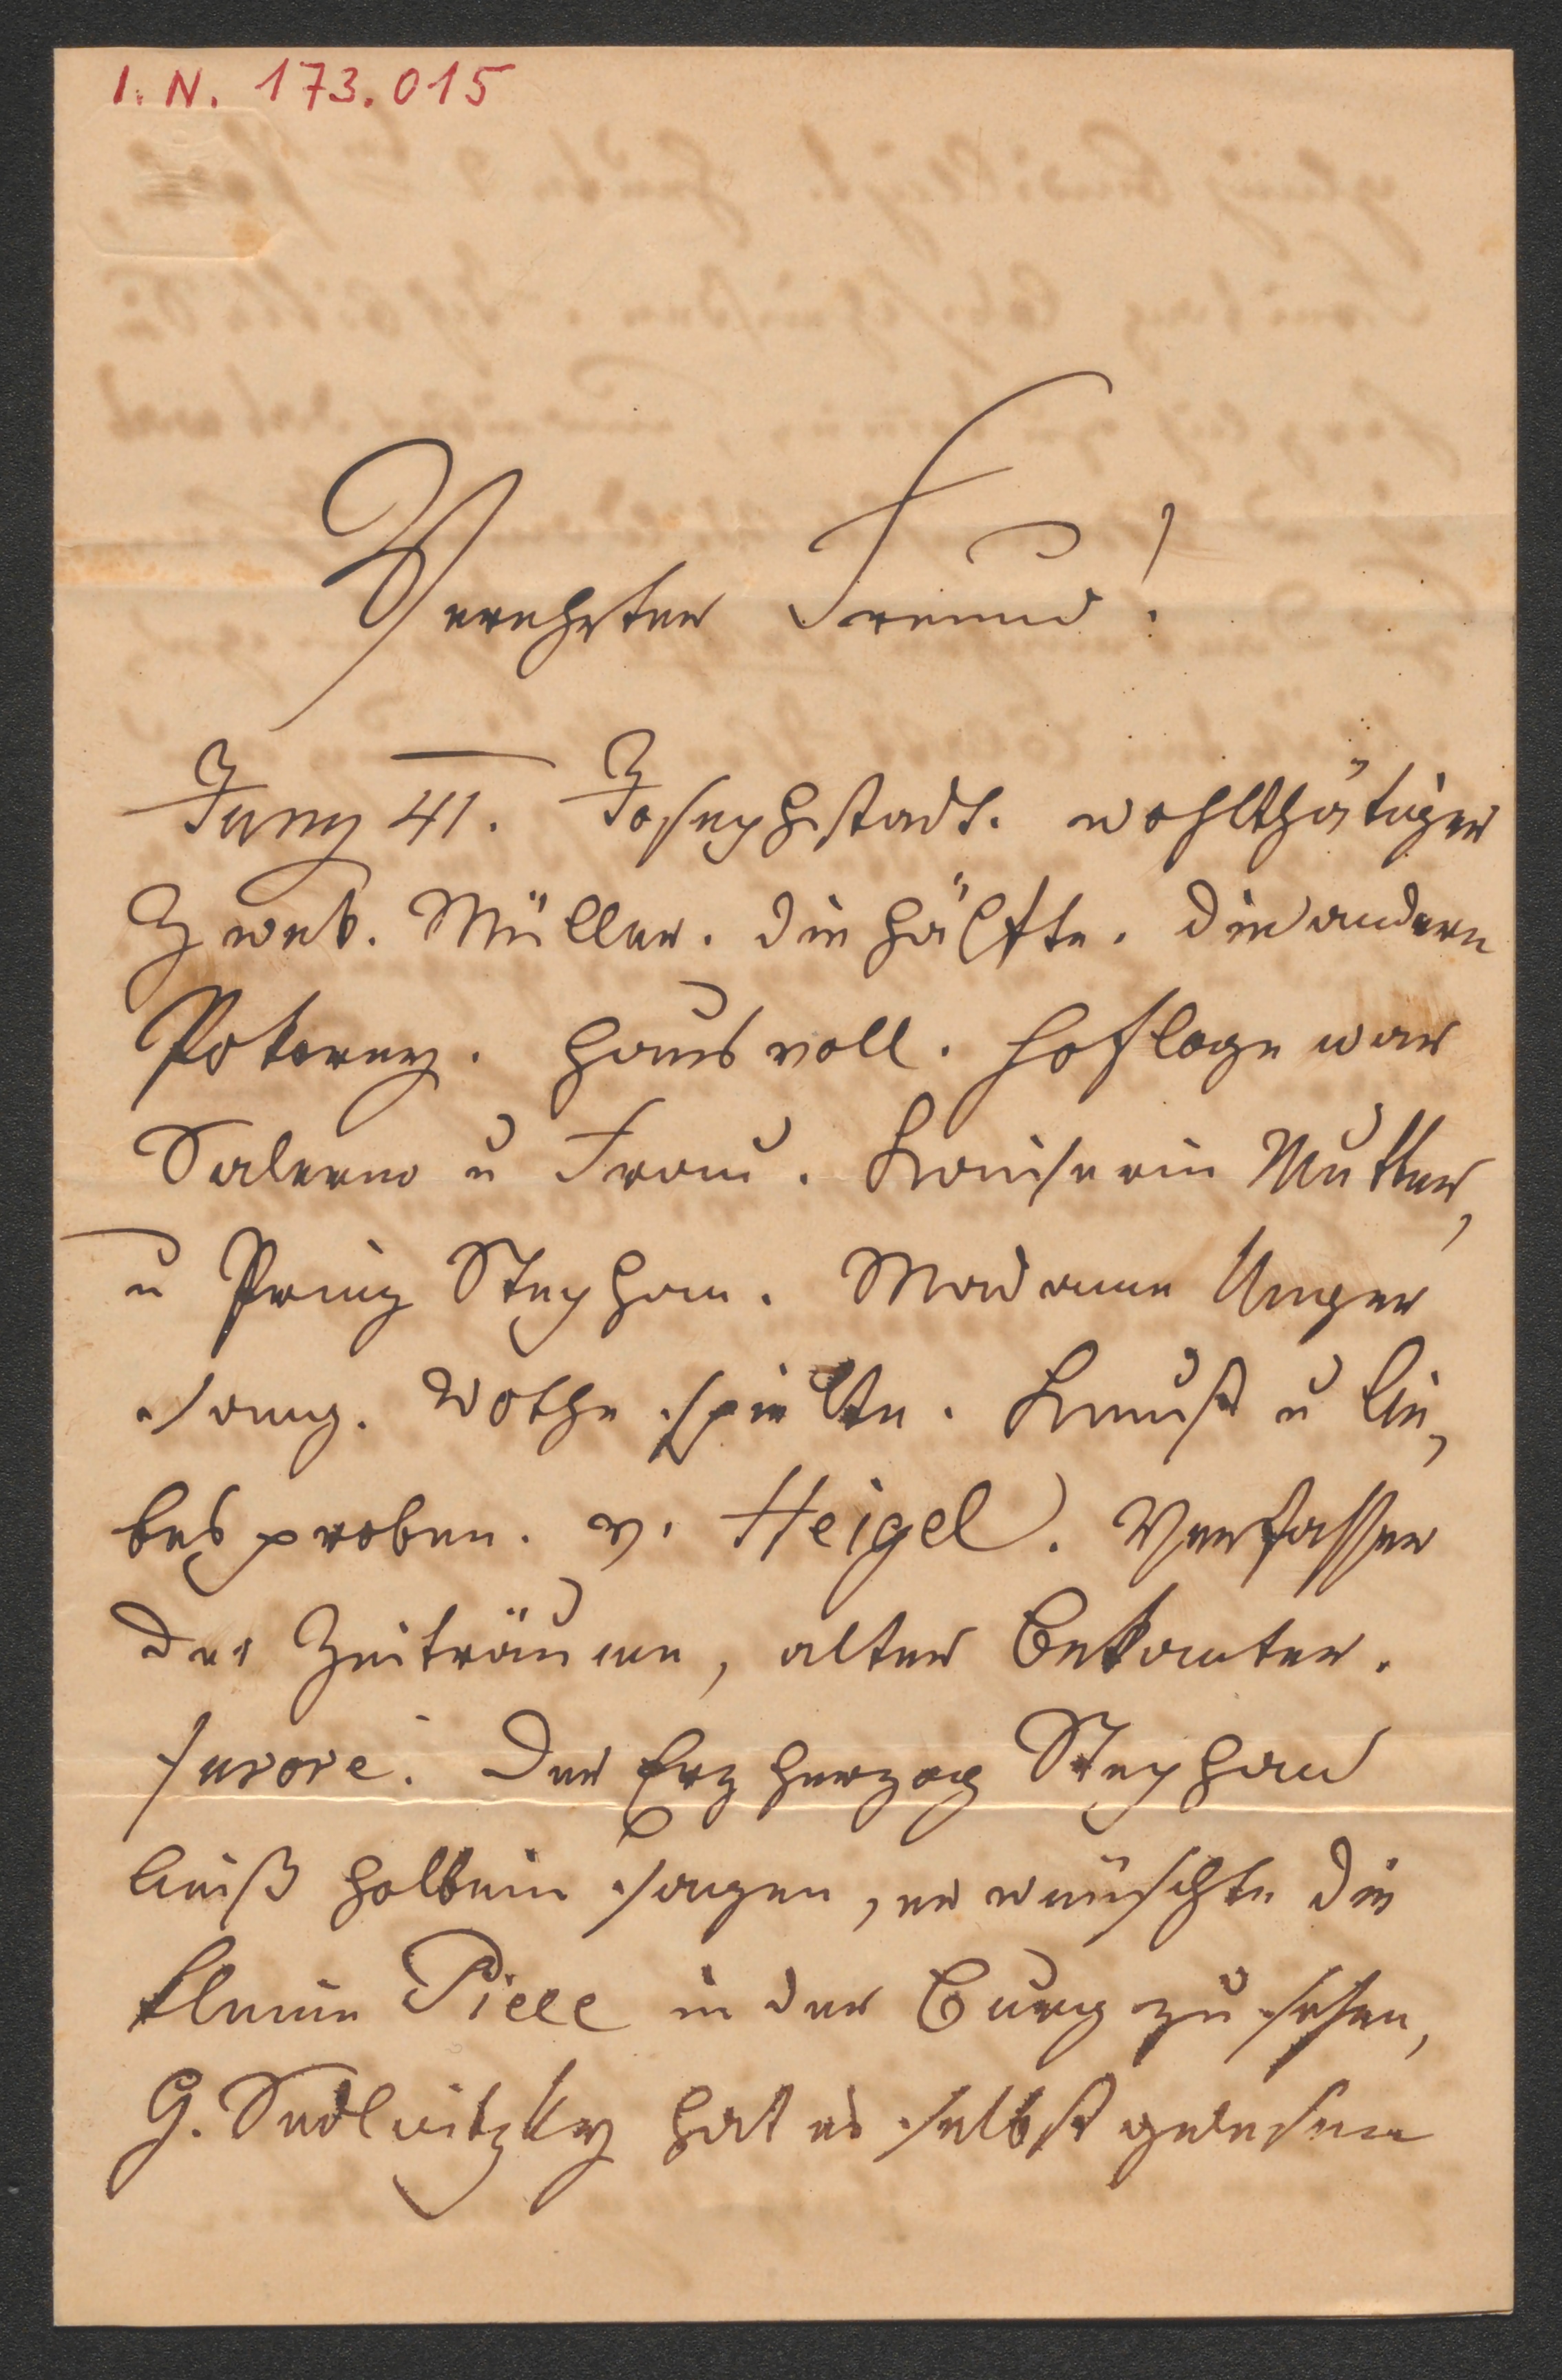 I. N. 173.015
Verehrter Freund!
Juny 41. Josephstadt. wohlthätiger
Zweck. Müller. die Hälfte. die andere
Pokorny. Haus voll. Hofloge war
Salerno u Frau. Kaiserin Mutter,
u Prinz Stephan. Madame Unger
sang. Rothe spielte. Kunst u Lie,
besproben. v. Heigel. Verfasser
der Zeiträume, alter Bekanter.
furore. Der Erzherzog Stephan
ließ Holbein sagen, er wünschte die
kleine Piece in der Burg zu sehen,
G. Sedlnitzky hat es selbst gelesen